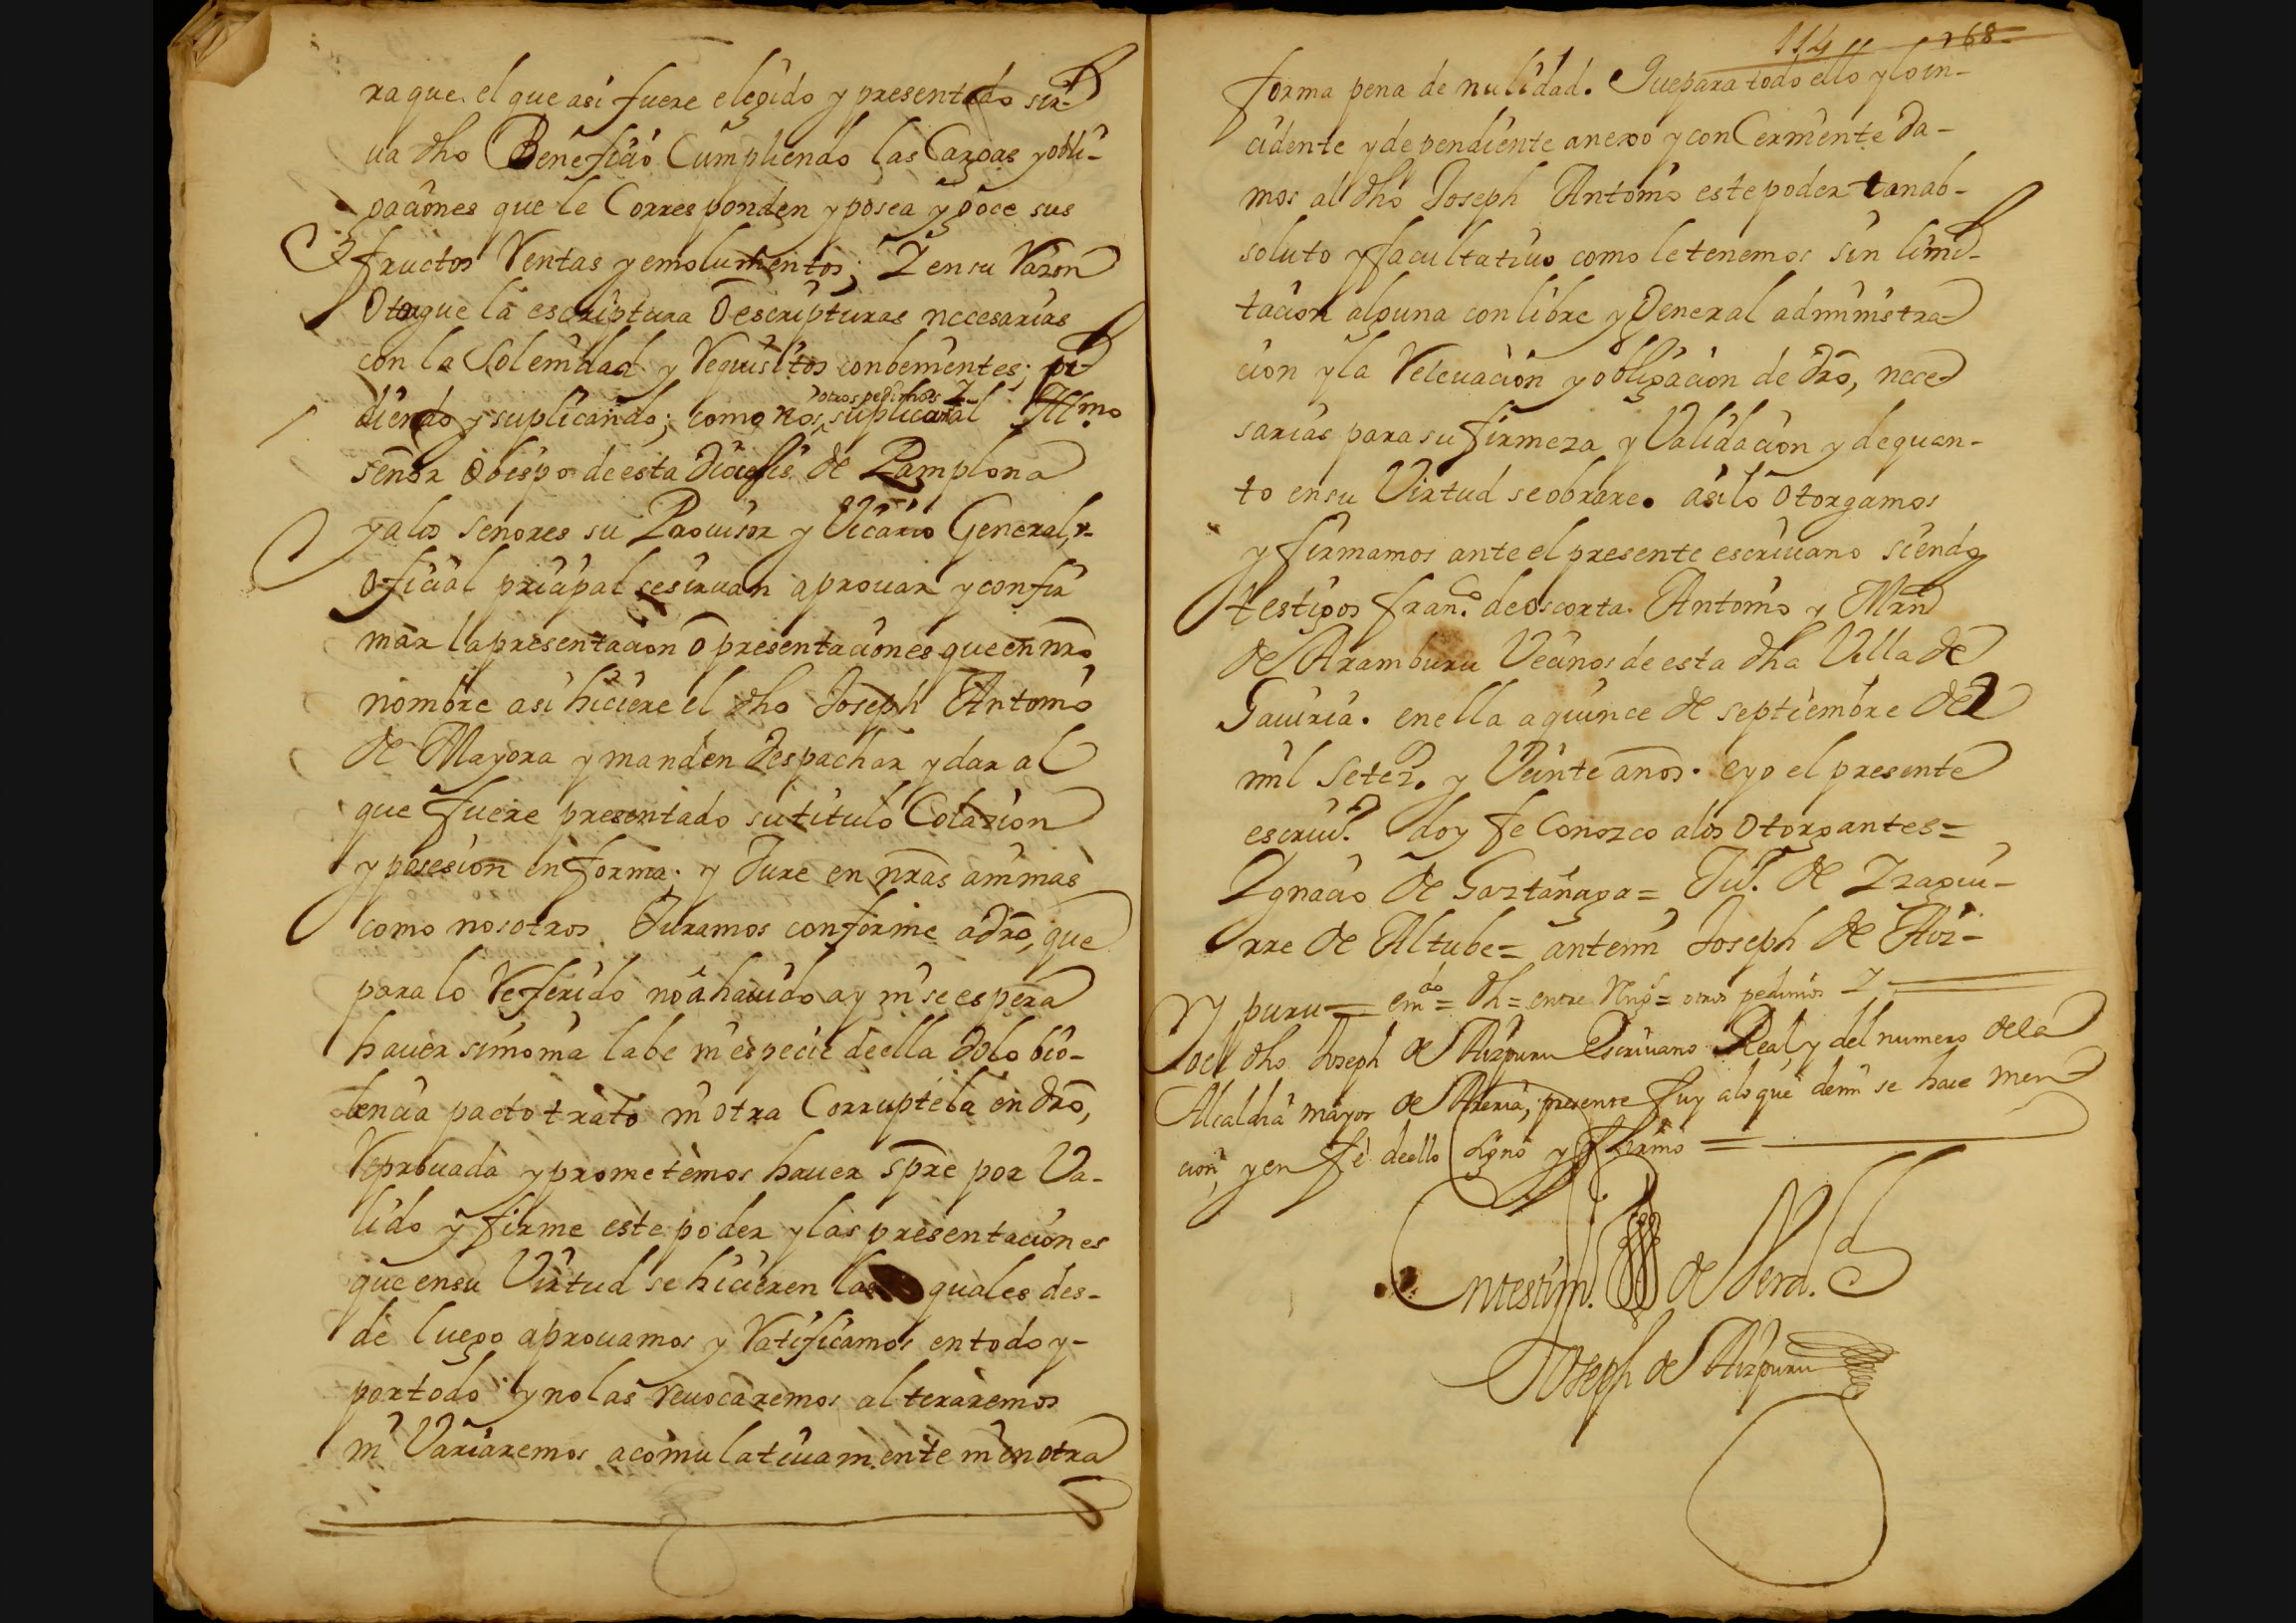 ra que el que asi fuere elegido y presentado sir-
ua dho Beneficio Cumpliendo las Cargas y obli-
gaciones que le Corresponden y posea y goce sus
fructos Rentas y emolumentos; Y en su Razon
Otorgue la escriptura O escripturas necesarias
con la Solemidad y Requisitos conbenientes; pi-
otros pedimos Y
diendo y suplicando; como nos suplican al Illmo
señor Obispo de esta diocesis de Pamplona
y a los señores su Prouisor y Vicario General, y
Oficial pricipal se siruan aprouar y confir
mar la presentacion O presentaciones que en nro
nombre asi hiciere el dho Joseph Antonio
de Mayora y manden despachar y dar al
que fuere presentado su titulo Colazion
y posesion en forma; y Jure en nras animas
como nosotros Juramos conforme a dro, que
para lo Referido no â hauido ay ni se espera
hauer simonia labe ni especie de ella dolo bio-
lencia pacto trato ni otra Corruptela en dro,
Reprouada y prometemos hauer spre por Va-
lido y firme este poder y las presentaciones
que en su Virtud se hicieren las quales des-
de luego aprouamos y Ratificamos en todo y-
por todo y no las reuocaremos alteraremos
ni Variaremos acomulatiuamente ni en otra
114 168
forma pena de nulidad. Que para todo ello y lo in-
cidente y dependiente anexo y conCerniente da-
mos al dho Joseph Antonio este poder tan ab-
soluto y facultatiuo como le tenemos sin limi-
tacion alguna con libre y General administra-
cion y la Releuacion y obligacion de dro, nece-
sarias para su firmeza y Validacion y de quan-
to en su Virtud se obrare. asi lo Otorgamos
y firmamos ante el presente escriuano siendo
testigos franco de oscorta. Antonio y Mrn
de Aramburu Vecinos de esta dha Villa de
Gauiria. en ella a quince de septiembre de
mil Setez.s y Veinte años. e yo el presente
escriuo. doy fe Conozco a los Otorgantes=
Ygnacio de Gaztañaga= Ju.o de Yzagui-
rre de Altube= ante mi Joseph de Aiz-
puru= emdo= dh= entre Rengs= otros pedimos Y
Yo el dho Joseph de Aizpuru Escriuano Real, y del numero de la
Alcaldia mayor de Areria, presente fuy a lo que de mi se hace men
cion, y en fe de ello signo y firmo =
En testim.o de Verd.d
Joseph de Aizpuru